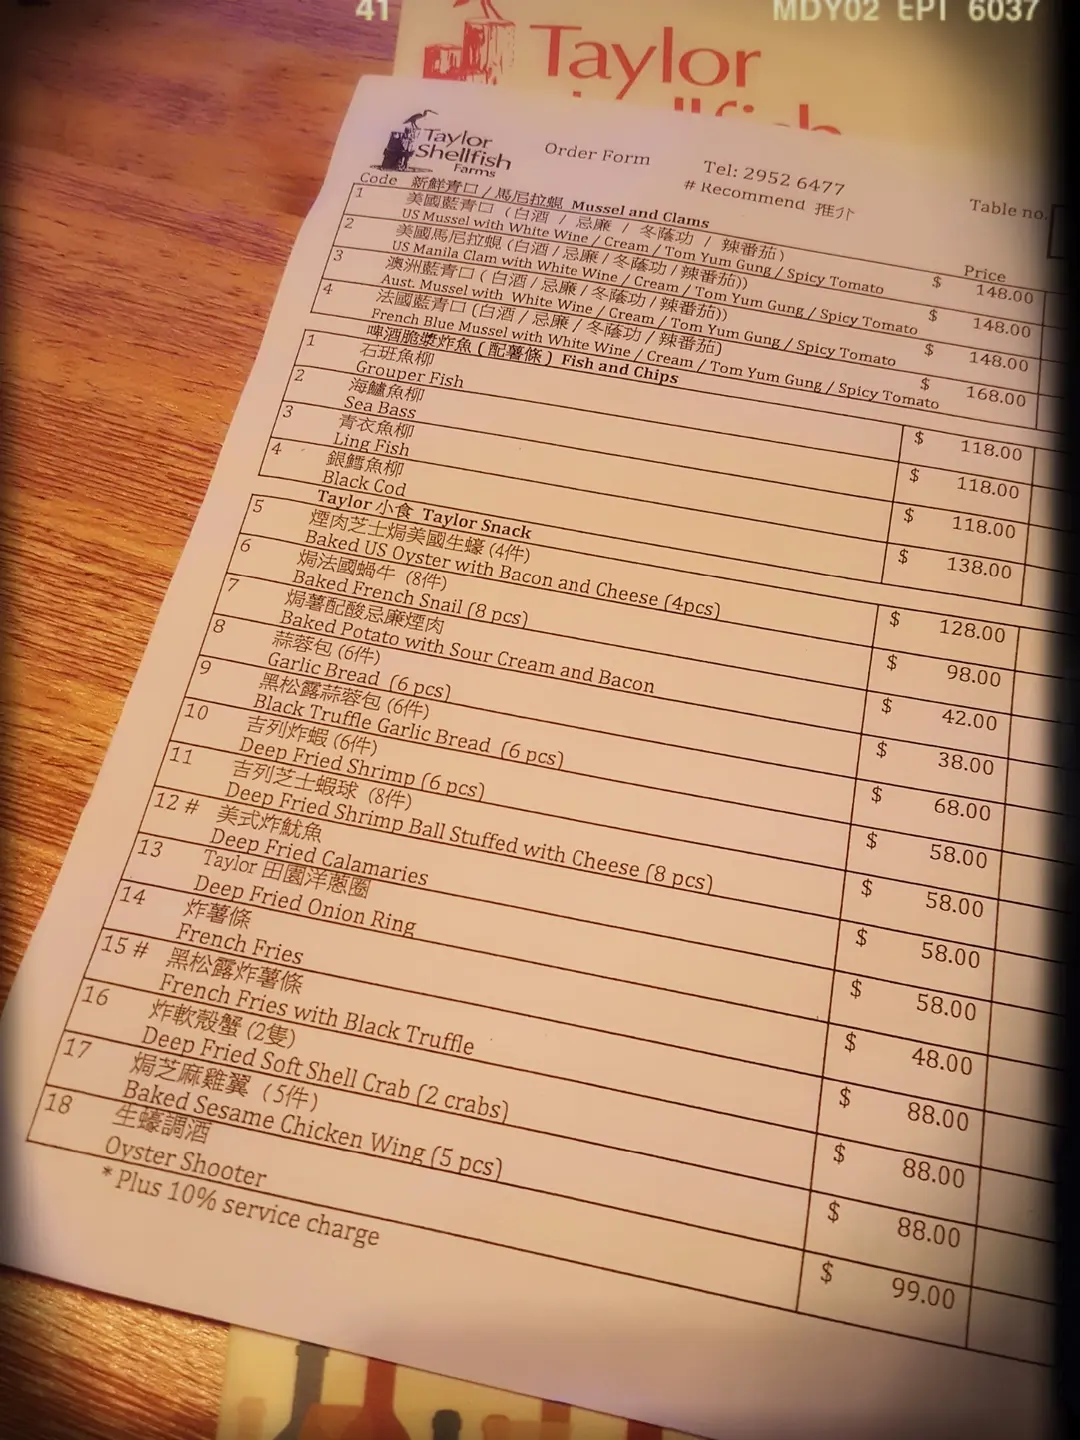 41
MDY02 EPI 6037
Taylor
Taylor
Shellfish
Farms
Order Form
Tel: 2952 6477
# Recommend 推介
Table no.
Code 新鮮青口 / 馬尼拉蜆 Mussel and Clams
Price
1 美國藍青口 (白酒 / 忌廉 / 冬蔭功 / 辣番茄)
US Mussel with White Wine / Cream / Tom Yum Gung / Spicy Tomato $ 148.00
2 美國馬尼拉蜆 (白酒 / 忌廉 / 冬蔭功 / 辣番茄))
US Manila Clam with White Wine / Cream / Tom Yum Gung / Spicy Tomato $ 148.00
3 澳洲藍青口 (白酒 / 忌廉 / 冬蔭功 / 辣番茄))
Aust. Mussel with White Wine / Cream / Tom Yum Gung / Spicy Tomato $ 148.00
4 法國藍青口 (白酒 / 忌廉 / 冬蔭功 / 辣番茄)
French Blue Mussel with White Wine / Cream / Tom Yum Gung / Spicy Tomato $ 168.00
啤酒脆漿炸魚 ( 配薯條 ) Fish and Chips
1 石班魚柳
Grouper Fish $ 118.00
2 海鱸魚柳
Sea Bass $ 118.00
3 青衣魚柳
Ling Fish $ 118.00
4 銀鱈魚柳
Black Cod $ 138.00
Taylor 小食 Taylor Snack
5 煙肉芝士焗美國生蠔 (4件)
Baked US Oyster with Bacon and Cheese (4pcs) $ 128.00
6 焗法國蝸牛 (8件)
Baked French Snail (8 pcs) $ 98.00
7 焗薯配酸忌廉煙肉
Baked Potato with Sour Cream and Bacon $ 42.00
8 蒜蓉包 (6件)
Garlic Bread (6 pcs) $ 38.00
9 黑松露蒜蓉包 (6件)
Black Truffle Garlic Bread (6 pcs) $ 68.00
10 吉列炸蝦 (6件)
Deep Fried Shrimp (6 pcs) $ 58.00
11 吉列芝士蝦球 (8件)
Deep Fried Shrimp Ball Stuffed with Cheese (8 pcs) $ 58.00
12 # 美式炸魷魚
Deep Fried Calamaries $ 58.00
13 Taylor 田園洋蔥圈
Deep Fried Onion Ring $ 58.00
14 炸薯條
French Fries $ 48.00
15 # 黑松露炸薯條
French Fries with Black Truffle $ 88.00
16 炸軟殼蟹 (2隻)
Deep Fried Soft Shell Crab (2 crabs) $ 88.00
17 焗芝麻雞翼 (5件)
Baked Sesame Chicken Wing (5 pcs) $ 88.00
18 生蠔調酒
Oyster Shooter $ 99.00
* Plus 10% service charge